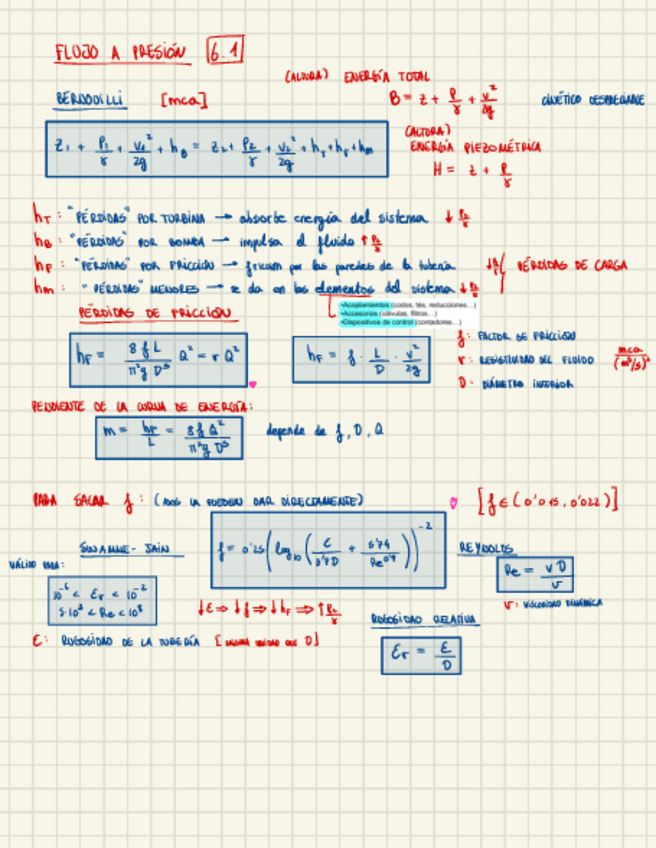 FLUJO A PRESIÓN 6.1
(ALTURA) ENERGÍA TOTAL
BERNOUILLI [mca]
B = z + P/γ + v²/2g CINÉTICO DESPRECIABLE
z₁ + P₁/γ + v₁²/2g + h_B = z₂ + P₂/γ + v₂²/2g + h_T + h_F + h_m
(ALTURA)
ENERGÍA PIEZOMÉTRICA
H = z + P/γ
h_T : "PÉRDIDAS" POR TURBINA → absorbe energía del sistema ↓ P₂/γ
h_B : "PÉRDIDAS" POR BOMBA → impulsa el fluido ↑ P₂/γ
h_F : "PÉRDIDAS" POR FRICCIÓN → fricción por las paredes de la tubería ↓ P₂/γ PÉRDIDAS DE CARGA
h_m : "PÉRDIDAS" MENORES → se da en los elementos del sistema ↓ P₂/γ
•Acoplamientos (codos, tés, reducciones...)
•Accesorios (válvulas, filtros...)
•Dispositivos de control (contadores...)
PÉRDIDAS DE FRICCIÓN
h_F = 8fL/π²gD⁵ Q² = r Q²
h_F = f · L/D · v²/2g
f : FACTOR DE FRICCIÓN
r : RESISTIVIDAD DEL FLUIDO mca/(m³/s)²
D : DIÁMETRO INTERIOR
PENDIENTE DE LA CURVA DE ENERGÍA:
m = h_F/L = 8fQ²/π²gD⁵ depende de f, D, Q
PARA SACAR f : (NOS LA PUEDEN DAR DIRECTAMENTE) [f ∈ (0'015, 0'022)]
SWAMME-JAIN
f = 0'25 (log₁₀ (ε/3'7D + 5'74/Re^0'9))⁻²
REYNOLDS
Re = vD/ν
ν : VISCOSIDAD DINÁMICA
VÁLIDO PARA:
10⁻⁶ < εr < 10⁻²
5·10³ < Re < 10⁸
↓ε ⇒ ↓f ⇒ ↓h_F ⇒ ↑P₂/γ
RUGOSIDAD RELATIVA
εr = ε/D
ε : RUGOSIDAD DE LA TUBERÍA [MISMA UNIDAD QUE D]